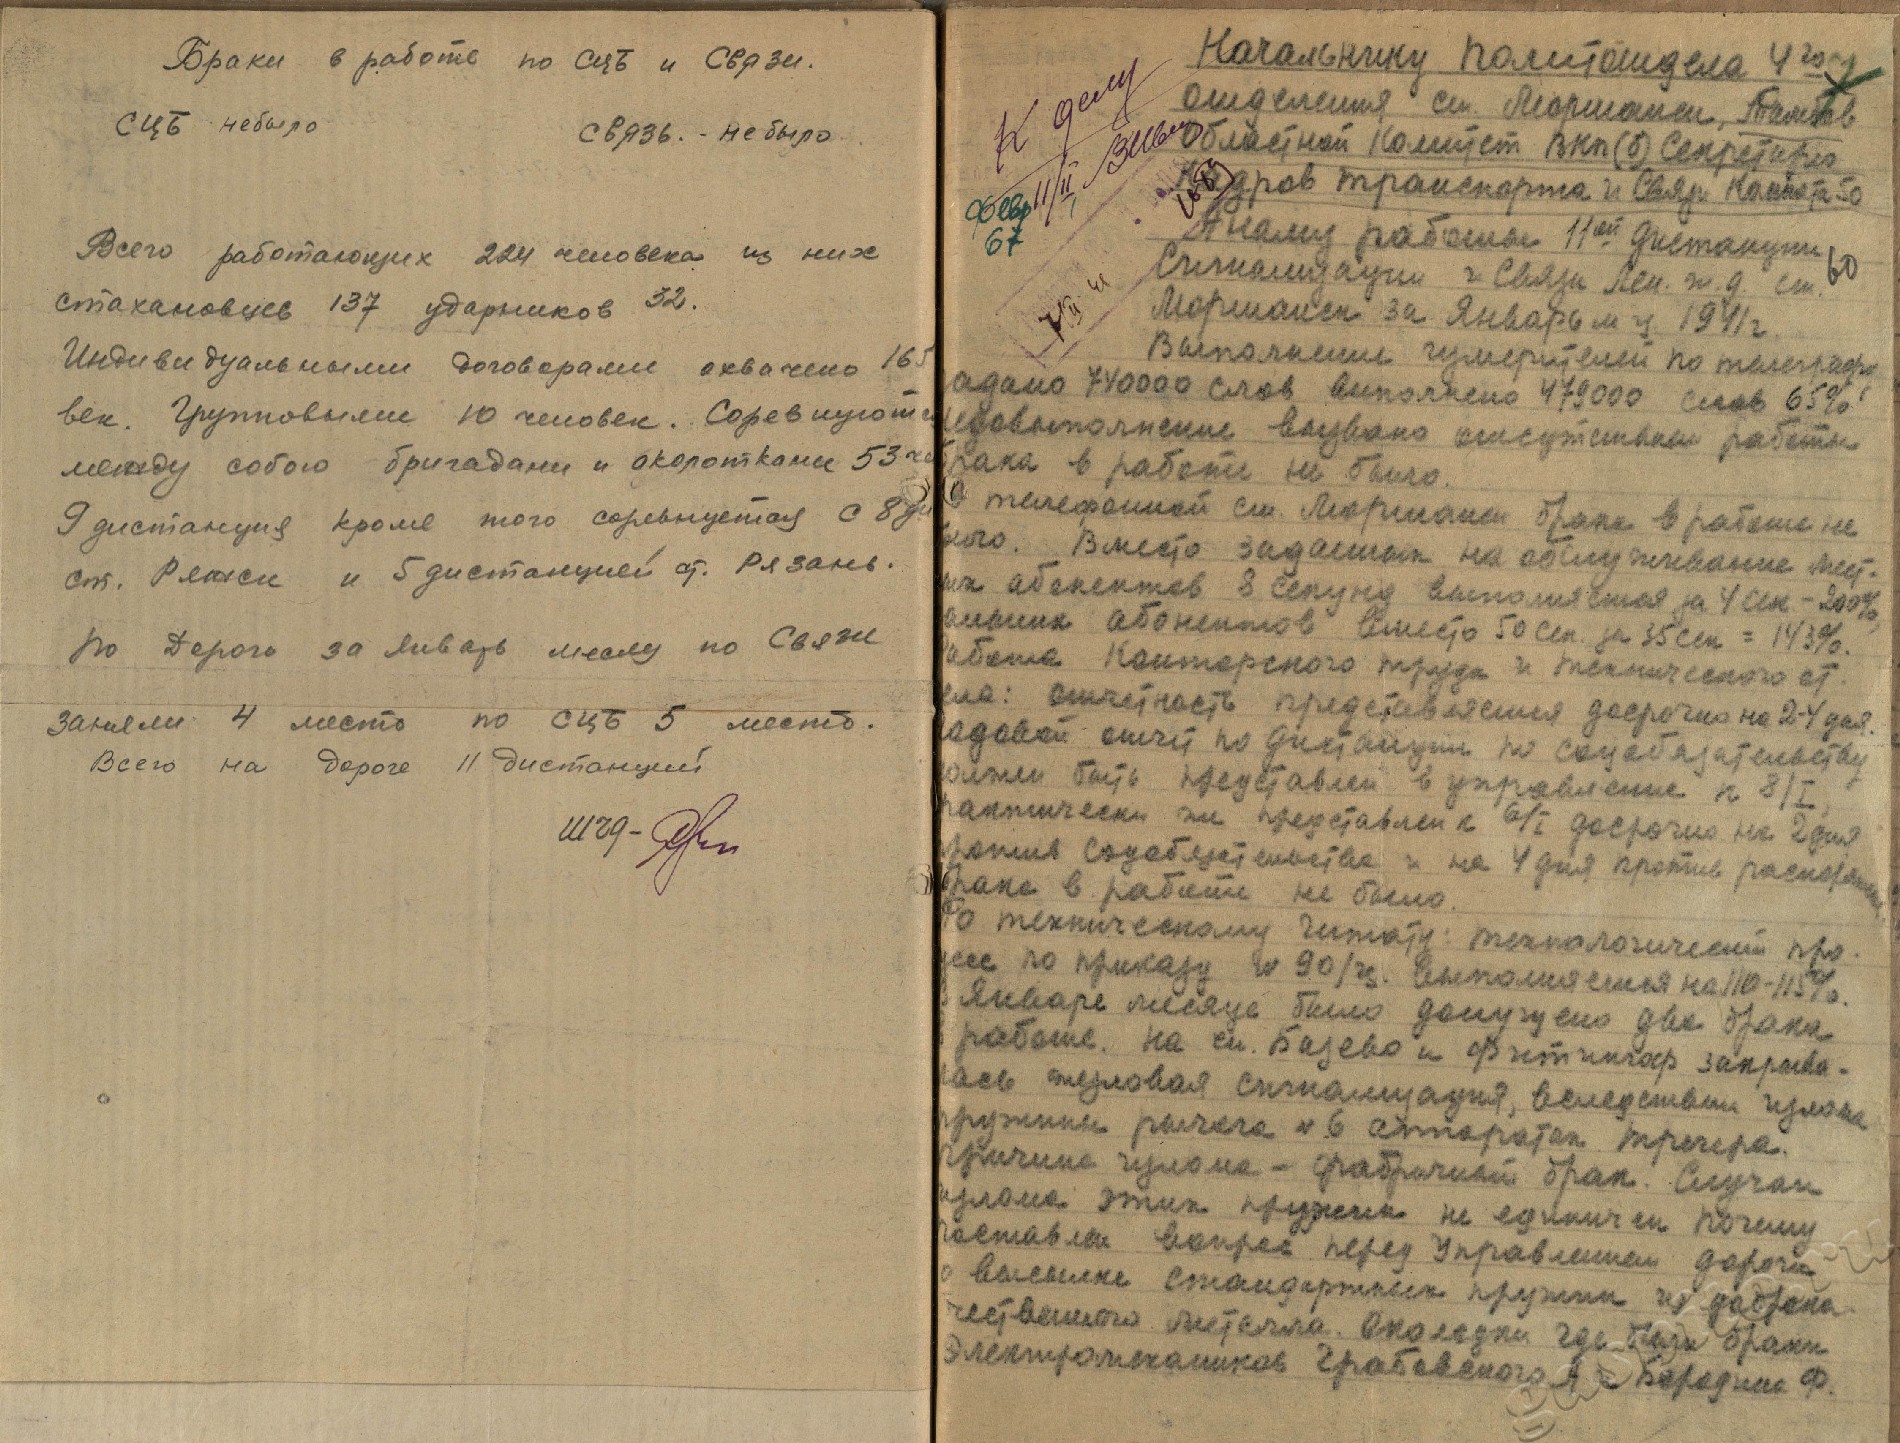 Браки в работе по СЦБ и Связи.
СЦБ небыло связь. - не было
Всего работающих 224 человека из них
стахановцев 137 ударников 32.
Индивидуальными договорами охвачено 165
век. Групповыми 10 человек. Соревнуются
между собою бригадами и околотками 53 че
9 дистанция кроме того соревнуется с 8 ди
ст. Ряжск и 5 дистанцией ст. Рязань.
По Дороге за январь месяц по Связи
заняли 4 место по СЦБ 5 место.
Всего на дороге 11 дистанций
ШЧ9-
К делу
11/II
февр
67
60
Начальнику Политотдела 4го
отделения ст. Моршанск, Тамбов
Областной Комитет ВКП(б) Секретарю
Кадров транспорта и Связи
Анализ работы 11ой дистанции
Сигнализации и Связи Лен. ж.д. ст.
Моршанск за Январь м-ц 1941г.
Выполнение измерителей по телеграфу
адано 740000 слов выполнено 479000 слов 65%
недовыполнение вызвано отсутствием работы
брака в работе не было.
телефонной ст. Моршанск брака в работе не
было. Вместо заданных на обслуживание мест-
ных абонентов 8 секунд выполняется за 4 сек - 200%,
альних абонентов вместо 50 сек. за 35 сек = 143%.
Работа Конторского труда и технического от.
ела: отчетность представляется досрочно на 2-4 дня.
одовой отчет по дистанции по соцобязательству
олжен быть представлен в управление к 8/I,
рактически же представлен к 6/I досрочно на 2 дня
ротив соцобязательства и на 4 дня против
брака в работе не было.
По техническому штату: технологический про-
цесс по приказу № 90/ц. выполняется на 110-115%.
В Январе месяце было допущено два брака
в работе. На ст. Базево и Фитингоф закрыва-
лась жезловая сигнализация, вследствии излома
пружины рычага № 6 аппаратах Трегера.
Причина излома - фабричный брак. Случаи
излома этих пружин не единичен почему
поставлен вопрос перед Управлением дороги
о высылке стандартных пружин из доброка-
чественного металла. Околодки где были браки
Электромехаников Грабовского Я и Бородин Ф.